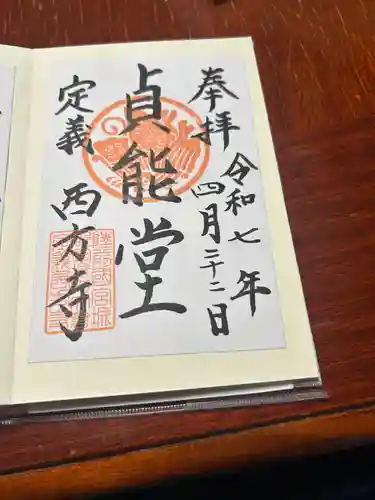 奉拝
令和七年
四月二十二日
貞能堂
定義
西方寺